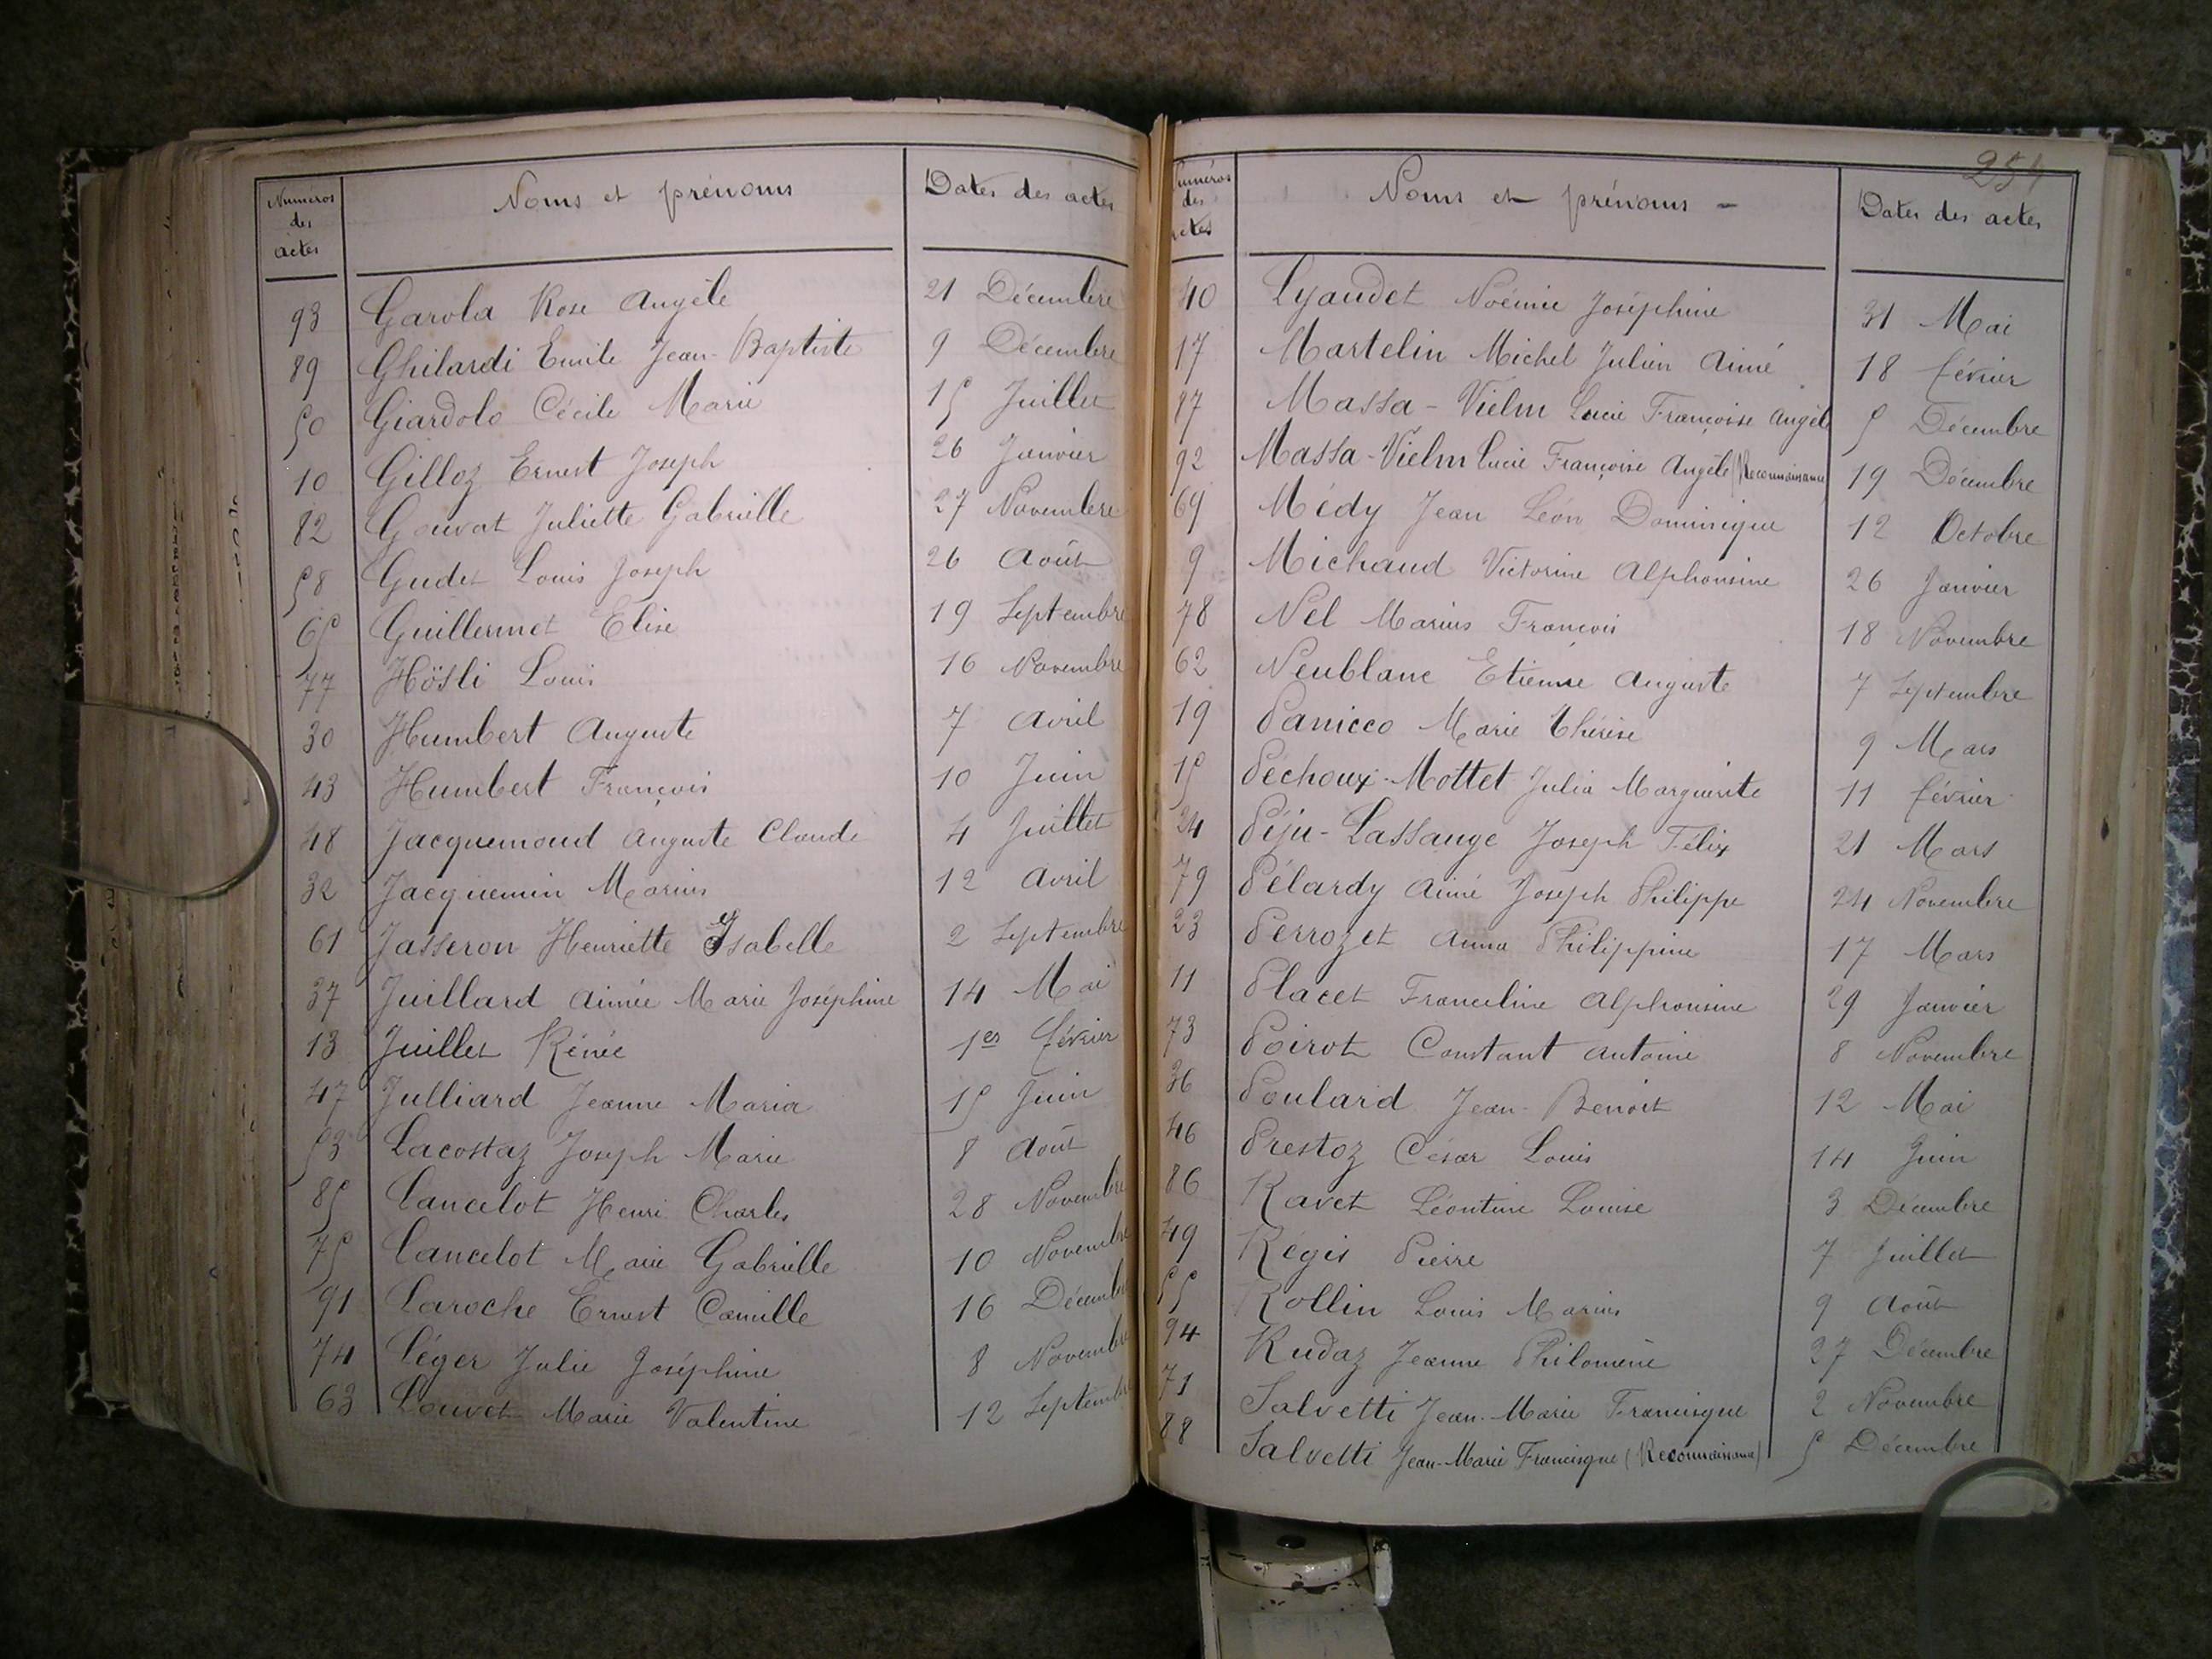 Numéros des actes Noms et prénoms Dates des actes
93 Garola Rose Angèle 21 Décembre
89 Ghilardi Emile Jean-Baptiste 9 Décembre
50 Giardolo Cécile Marie 15 Juillet
10 Gilloz Ernest Joseph 26 Janvier
82 Gouvat Juliette Gabrielle 27 Novembre
58 Gudet Louis Joseph 26 Août
65 Guillermet Elise 19 Septembre
77 Hösli Louis 16 Novembre
30 Humbert Auguste 7 Avril
43 Humbert François 10 Juin
48 Jacquemoud Auguste Claude 4 Juillet
32 Jacquemin Marius 12 Avril
61 Jasseron Henriette Isabelle 2 Septembre
37 Juillard Aimée Marie Joséphine 14 Mai
13 Juillet Rénée 1er février
47 Julliard Jeanne Maria 15 Juin
53 Lacostaz Joseph Marie 8 Août
85 Lancelot Henri Charles 28 Novembre
75 Lancelot Marie Gabrielle 10 Novembre
91 Laroche Ernest Camille 16 Décembre
74 Léger Julie Joséphine 8 Novembre
63 Louvet Marie Valentine 12 Septembre
254
Numéros des actes Noms et prénoms - Dates des actes
40 Lyaudet Noémie Joséphine 31 Mai
17 Martelin Michel Julien Aimé 18 février
87 Massa-Vielm Lucie Françoise Angèle 5 Décembre
92 Massa-Vielm Lucie Françoise Angèle (Reconnaissance) 19 Décembre
69 Médy Jean Léon Dominique 12 Octobre
9 Michaud Victorine Alphonsine 26 Janvier
78 Nel Marius François 18 Novembre
62 Neublanc Etienne Auguste 7 Septembre
19 Panicco Marie Thérèse 9 Mars
15 Péchoux-Mottet Julia Marguerite 11 février
24 Péju-Lassange Joseph Félix 21 Mars
79 Pélardy Aimé Joseph Philippe 24 Novembre
23 Perrozet Anna Philippine 17 Mars
11 Placet Franceline Alphonsine 29 Janvier
73 Poirot Constant Antoine 8 Novembre
36 Poulard Jean-Benoit 12 Mai
46 Prestoz César Louis 14 Juin
86 Ravet Léontine Louise 3 Décembre
49 Régis Pierre 7 Juillet
55 Rollin Louis Marius 9 Août
94 Rudaz Jeanne Philomène 27 Décembre
71 Salvetti Jean-Marie Francisque 2 Novembre
88 Salvetti Jean-Marie Francisque (Reconnaissance) 5 Décembre